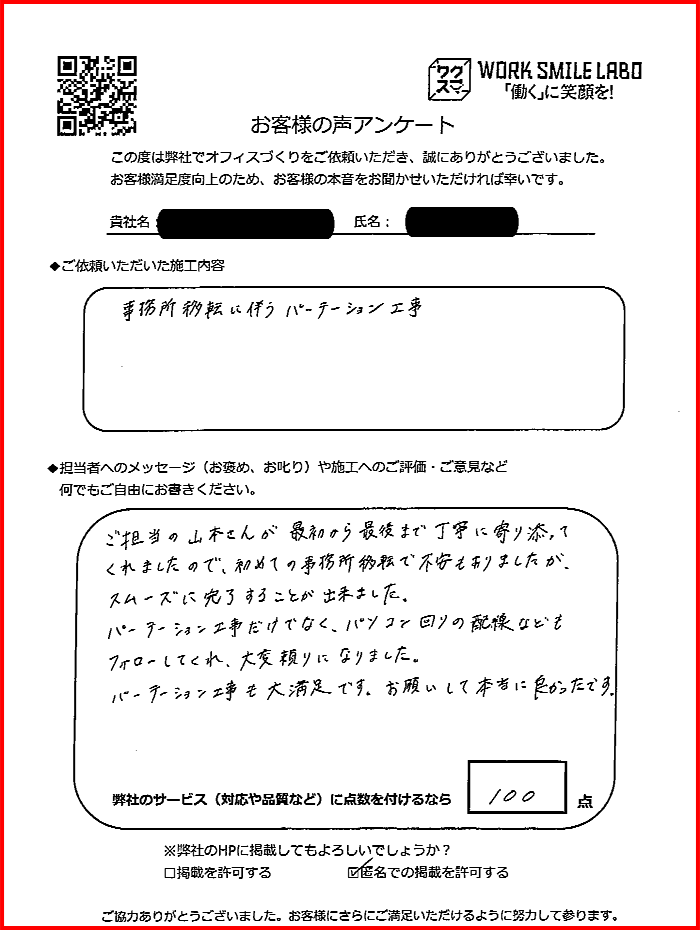 ワクスマ
WORK SMILE LABO
「働く」に笑顔を!
お客様の声アンケート
この度は弊社でオフィスづくりをご依頼いただき、誠にありがとうございました。
お客様満足度向上のため、お客様の本音をお聞かせいただければ幸いです。
貴社名: 氏名:
◆ご依頼いただいた施工内容
事務所移転に伴う パーテーション工事
◆担当者へのメッセージ(お褒め、お叱り)や施工へのご評価・ご意見など
何でもご自由にお書きください。
ご担当の山本さんが 最初から最後まで丁寧に寄り添って
くれましたので、初めての事務所移転で不安もありましたが、
スムーズに完了することが出来ました。
パーテーション工事だけでなく、パソコン回りの配線なども
フォローしてくれ、大変頼りになりました。
パーテーション工事も大満足です。お願いして本当に良かったです。
弊社のサービス(対応や品質など)に点数を付けるなら 100 点
※弊社のHPに掲載してもよろしいでしょうか?
□掲載を許可する ☑匿名での掲載を許可する
ご協力ありがとうございました。お客様にさらにご満足いただけるように努力して参ります。